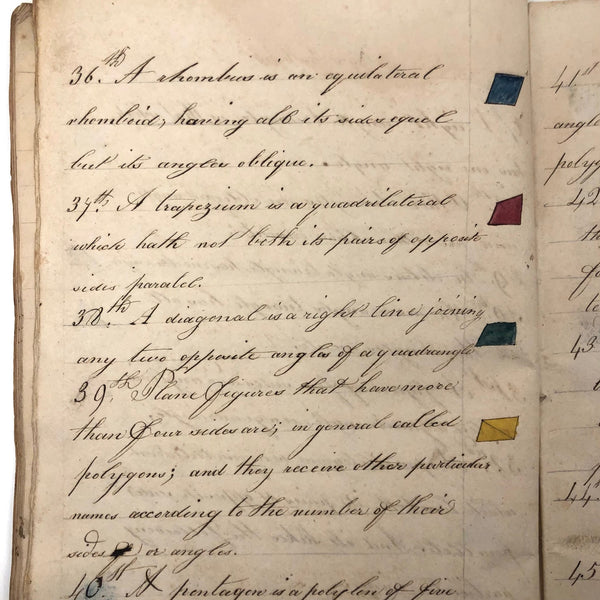 36.th A rhombus is an equilateral
rhomboid; having all its sides equel
but its angles oblique.
37th. A trapezium is a quadrilateral
which hath not both its pairs of opposite
sides paralel.
38.th A diagonal is a right line joining
any two opposite angles of a quadrangle
39.th Plane figures that have more
than four sides are; in general called
polygons; and they receive other particular
names according to the number of their
sides or angles.
40.st A pentagon is a polylen of five
41.st
angle
polyg
42
th
fo
43
44
45